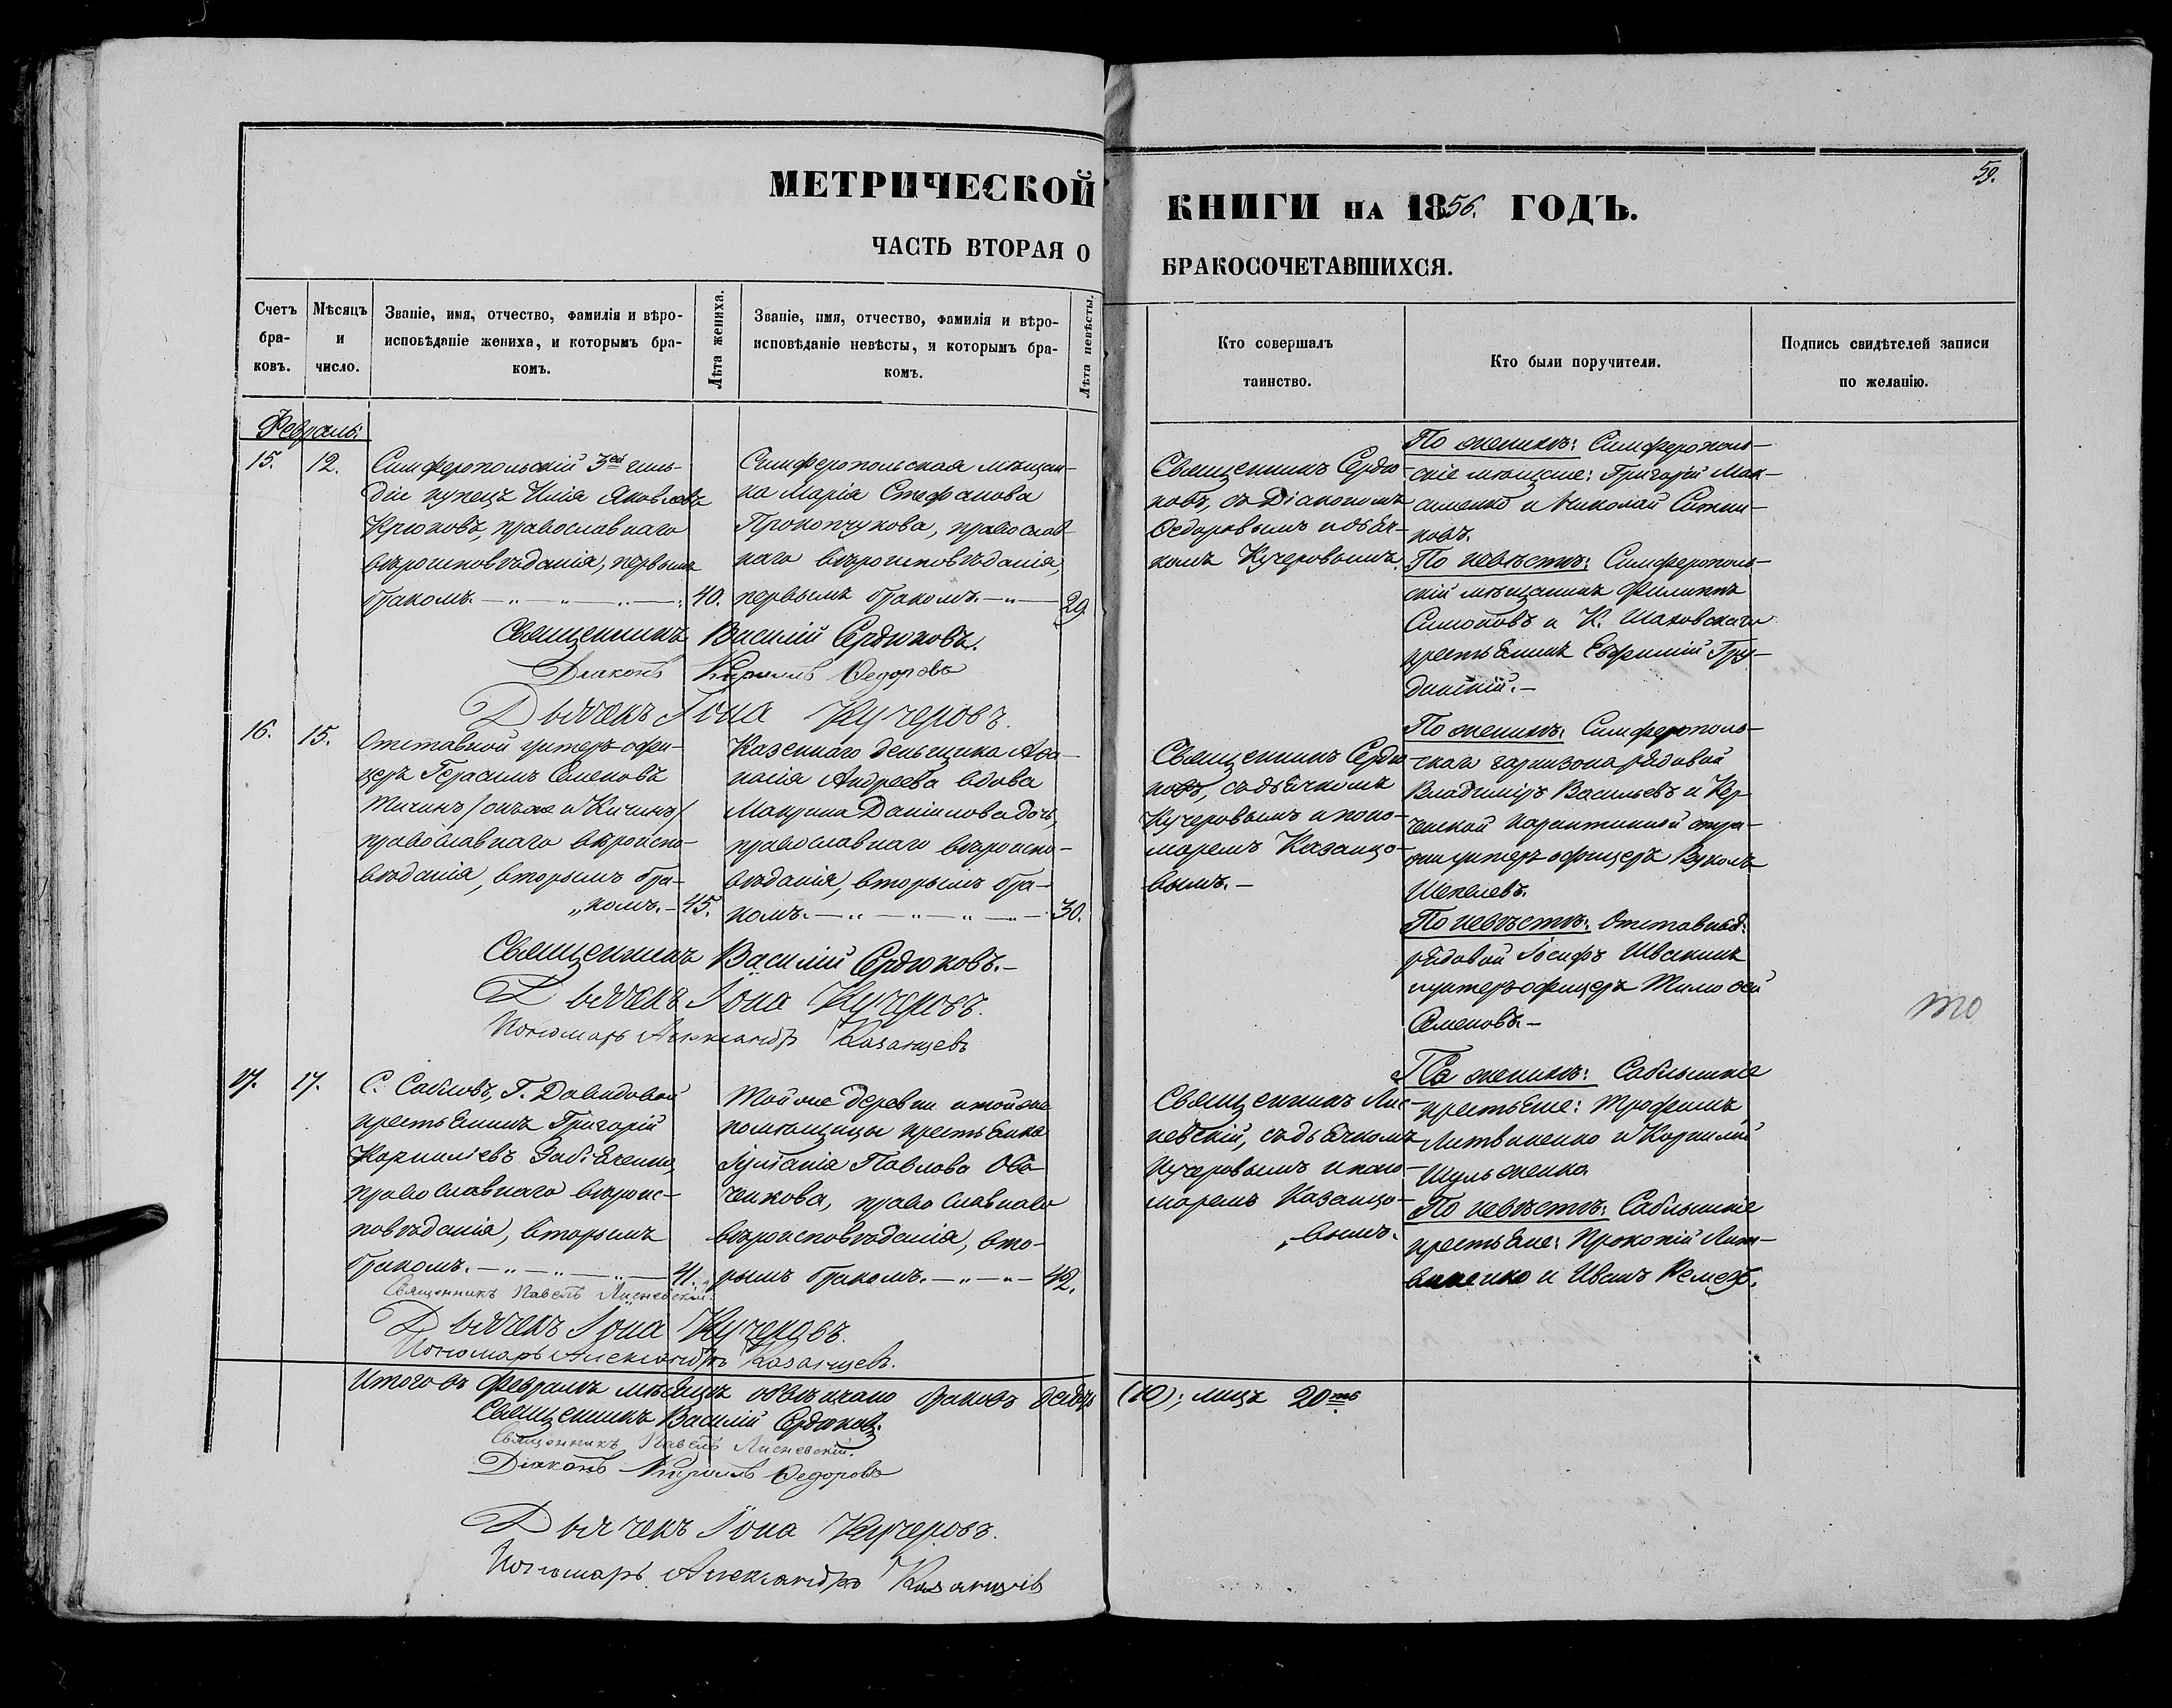 59.
МЕТРИЧЕСКОЙ КНИГИ НА 1856. ГОДЪ.
ЧАСТЬ ВТОРАЯ О БРАКОСОЧЕТАВШИХСЯ.
Счетъ
бра-
ковъ.
Мѣсяцъ
и
число.
Званіе, имя, отчество, фамилія и вѣро-
исповѣданіе жениха, и которымъ бра-
комъ.
Лѣта жениха.
Званіе, имя, отчество, фамилія и вѣро-
исповѣданіе невѣсты, и которымъ бра-
комъ.
Лѣта невѣсты.
Кто совершалъ
таинство.
Кто были поручители.
Подпись свидѣтелей записи
по желанію.
Февраль:
15.
12.
Симферопольскій 3ей гиль-
діи купецъ Илія Яковлевъ
Крюковъ, православнаго
вѣроисповѣданія, первымъ
бракомъ.
40.
Симферопольская мѣщан-
ка Марія Стефанова
Прокопчукова, православ-
наго вѣроисповѣданія,
первымъ бракомъ.
29.
Священникъ Сердю-
ковъ, съ Діакономъ
Ѳедоровымъ и дьяч-
комъ Кучеровымъ.
По женихѣ: Симферополь-
скіе мѣщане: Григорій Мак-
сименко и Николай Ситни-
ковъ.
По невѣстѣ: Симферополь-
скій мѣщанинъ Филиппъ
Симоновъ и К. Шаховскаго
крестьянинъ Евфимій Гру-
динскій.
Священникъ Василій Сердюковъ.
Діаконъ Кириллъ Ѳедоровъ
Дьячекъ Іона Кучеровъ.
16.
15.
Отставной унтеръ офи-
церъ Герасимъ Семеновъ
Тичинъ /онъ же и Кичинъ/
православнаго вѣроиспо-
вѣданія, вторымъ бра-
„комъ.
45.
Казеннаго деньщика Аѳа-
насія Андреева вдова
Макрина Даніилова дочь,
православнаго вѣроиспо-
вѣданія, вторымъ бра-
комъ.
30.
Священникъ Сердю-
ковъ, съ дьячкомъ
Кучеровымъ и поно-
маремъ Казанцо-
вымъ.
По женихѣ: Симферополь-
скаго гарнизона рядовой
Владиміръ Васильевъ и Кер-
ченской карантинной стра-
жи унтеръ офицеръ Вуколъ
Шепелевъ.
По невѣстѣ: Отставные:
рядовой Іосифъ Ивакинъ
и унтеръ-офицеръ Тимоѳей
Семеновъ.
то
Священникъ Василій Сердюковъ.
Дьячекъ Іона Кучеровъ.
Пономарь Александръ Казанцевъ
17.
17.
С. Сабловъ, Г. Давидовой
крестьянинъ Григорій
Корниліевъ
православнаго вѣроис-
повѣданія, вторымъ
бракомъ.
41.
Той же деревни и той же
помѣщицы крестьянка
Іуліанія Павлова Ов-
ченкова, православнаго
вѣроисповѣданія, вто-
рымъ бракомъ.
42.
Священникъ Лис-
невскій, съ дьячкомъ
Кучеровымъ и поно-
маремъ Казанцо-
„вымъ.
По женихѣ: Саблынскіе
крестьяне: Трофимъ
Литвиненко и Корнилій
Шульженко.
По невѣстѣ: Саблынскіе
крестьяне: Прокопій Лит-
виненко и Иванъ Ремезъ.
Священникъ Павелъ Лисневскій.
Дьячекъ Іона Кучеровъ.
Пономарь Александръ Казанцевъ.
Итого въ Февралѣ мѣсяцѣ обвѣнчано браковъ десять (10); лицъ 20ть
Священникъ Василій Сердюковъ.
Священникъ Павелъ Лисневскій.
Діаконъ Кириллъ Ѳедоровъ
Дьячекъ Іона Кучеровъ.
Пономарь Александръ Казанцевъ